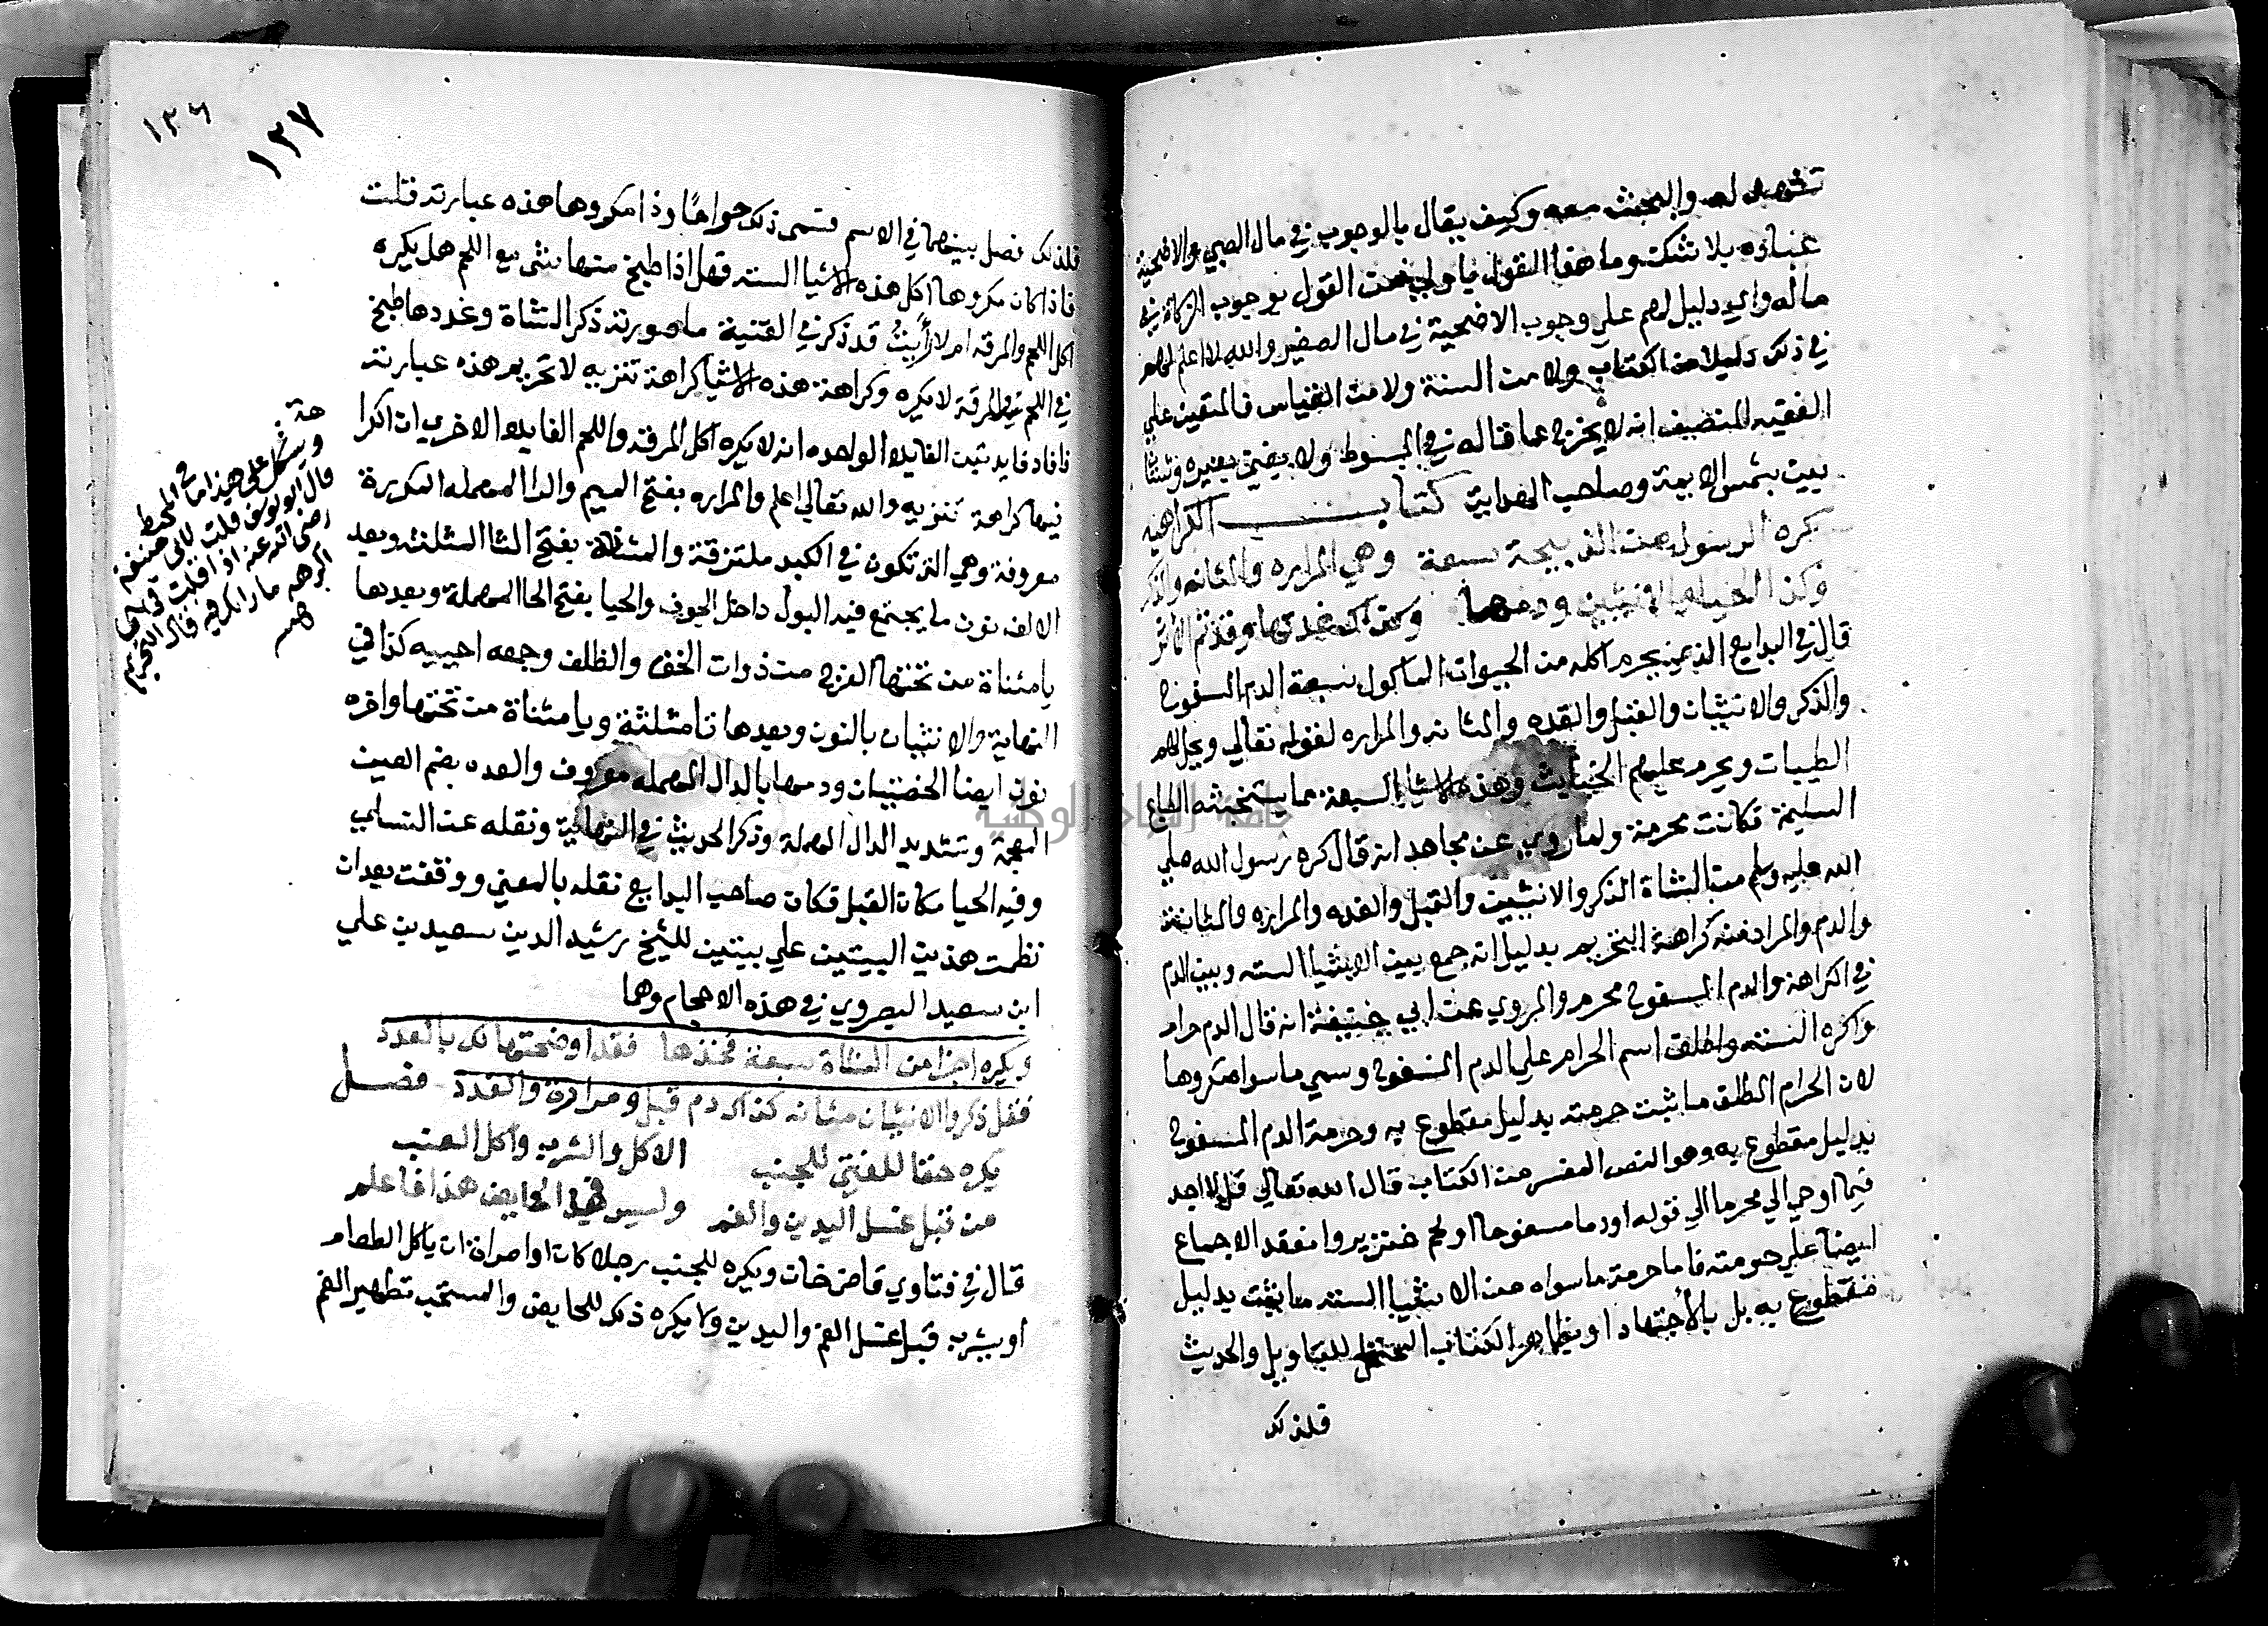 تشهد له والبحث معه وكيف يقال بالوجوب في مال الصبي والاضحية
عبادة بلا شك وما هذا القول باولي من القول بوجوب الزكاة في
ماله واي دليل لهم علي وجوب الاضحية في مال الصغير والله لا اعلم لهم
في ذلك دليلا من الكتاب ولا من السنة ولا من القياس فالمتعين علي
الفقيه المنصف انه لا يخرج عما قاله في المبسوط ولا يفتي بغيره
بيت بشمس الايمة وصاحب الهداية كتاب الكراهية
كره الرسول من الذبيحة سبعة وهي المراره والمثانه والذكر
وكذا الحيا والانثيين ودمها وكذاك غدتها وقد تم الاثر
قال في البدايع الذي يحرم اكله من الحيوان الماكول سبعة الدم المسفوح
والذكر والانثيان والقبل والغده والمثانه والمراره لقوله تعالي ويحل لهم
الطيبات ويحرم عليهم الخبايث وهذه الاشيا السبعة مما يستخبثه الطباع
السليمة فكانت محرمة ولما روي عن مجاهد انه قال كره رسول الله صلي
الله عليه وسلم من الشاة الذكر والانثيين والقبل والغده والمراره والمثانة
والدم والمراد منه كراهة التحريم بدليل انه جمع بين الاشيا الستة وبين الدم
في الكراهة والدم المسفوح محرم والمروي عن ابي حنيفة انه قال الدم حرام
واكره الستة واطلق اسم الحرام علي الدم المسفوح وسمي ما سواه مكروها
لان الحرام المطلق ما ثبت حرمته بدليل مقطوع به وحرمة الدم المسفوح
بدليل مقطوع به وهو النص المفسر من الكتاب قال الله تعالي قل لا اجد
فيما اوحي الي محرما الي قوله او دما مسفوحا او لحم خنزير وانعقد الاجماع
ايضا علي حرمته فاما حرمة ما سواه من الاشيا الستة ما ثبت بدليل
مقطوع به بل بالاجتهاد او بظاهر الكتاب المحتمل للتاويل والحديث
فلذلك
١٣٦
١٣٧
فلذلك فصل بينهما في الاسم فسمي ذلك حراما وذا مكروها هذه عبارته قلت
فاذا كان مكروها اكل هذه الاشيا الستة فهل اذا طبخ منها شي مع اللحم هل يكره
اكل اللحم والمرقه ام لا رأيتُ قد ذكر في القنية ما صورته ذكر الشاة وغددها طبخ
في اللحم والمرقة لا يكره وكراهة هذه الاشيا كراهة تنزيه لا تحريم هذه عبارته
فافاد فايدتين الفايدة الواحده انه لا يكره اكل المرقة واللحم الفايدة الاخري ان الكرا
فيها كراهة تنزيه والله تعالي اعلم والمراره بفتح الميم والرا المهمله المكررة
معروفة وهي التي تكون في الكبد ملتزقة والمثانة بفتح الثا المثلثه وبعد
الالف نون ما يجتمع فيه البول داخل الجوف والحيا بفتح الحا المهملة وبعدها
يا مثناة من تحتها الفرج من ذوات الخف والظلف وجمعه احيية كذا في
النهاية والانثيان بالنون وبعدها ثا مثلثة ويا مثناة من تحتها واخره
نون ايضا الخصيتان ودمها بالدال المهمله معروف والغده بضم الغين
المعجمة وتشديد الدال المهملة وذكر الحديث في النهاية ونقله عن
وفيه الحيا مكان القبل فكان صاحب البدايع نقله بالمعني ووقفت بعد ان
نظمت هذين البيتين علي بيتين للشيخ رشيد الدين سعيد بن علي
ابن سعيد البصروي في هذه الاحكام وهما
ويكره اجزا من الشاة سبعة فخذها فقد اوضحتها لك بالعدد
فقل ذكر والانثيان مثانه كذاك دم قبل ومرارة والغدد فصل
يكره حقا للفتي للجنب الاكل والشرب واكل العنب
من قبل غسل اليدين والفم وليس في الحايض هذا فاعلم
قال في فتاوي قاضي خان ويكره للجنب رجلا كان او امراة ان ياكل الطعام
او يشرب قبل غسل الفم واليدين ولا يكره ذلك للحايض والمستحب تطهير الفم
هة
ويشكل علي هذا ما في المحيط
قال ابو يوسف قلت لابي حنيفة
رضي الله عنه اذا قلت في شي
اكرهه ما رايك فيه قال التحريم